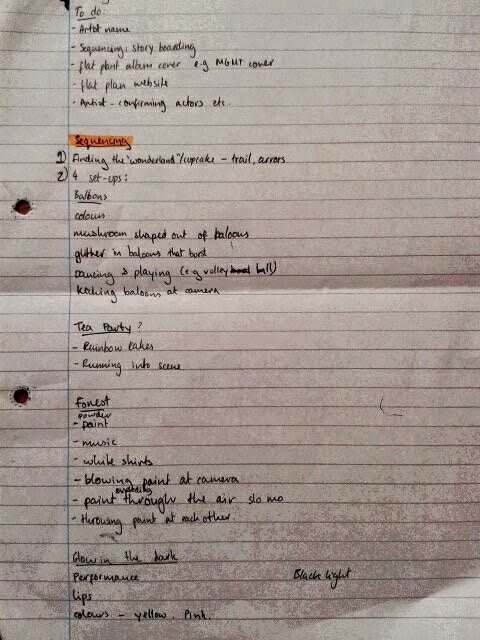 To do:
- Artist name
- Sequencing, story boarding
- flat plan album cover e.g MGMT cover
- flat plan website
- Artist - confirming actors etc.
Sequencing
1) Finding the "wonderland"/cupcake - trail, arrors
2) 4 set-ups:
Baloons
colours
mushroom shaped out of baloons
glitter in baloons that burst
Dancing & playing (e.g volley ball)
Kicking baloons at camera
Tea Party?
- Rainbow Cakes
- Running into scene
Forest
powder
- paint
- music
- white shirts
- blowing paint at camera
- paint through the air slo mo
- throwing paint at each other.
Glow in the dark
Performance Black light
Lips
colours - yellow. Pink.